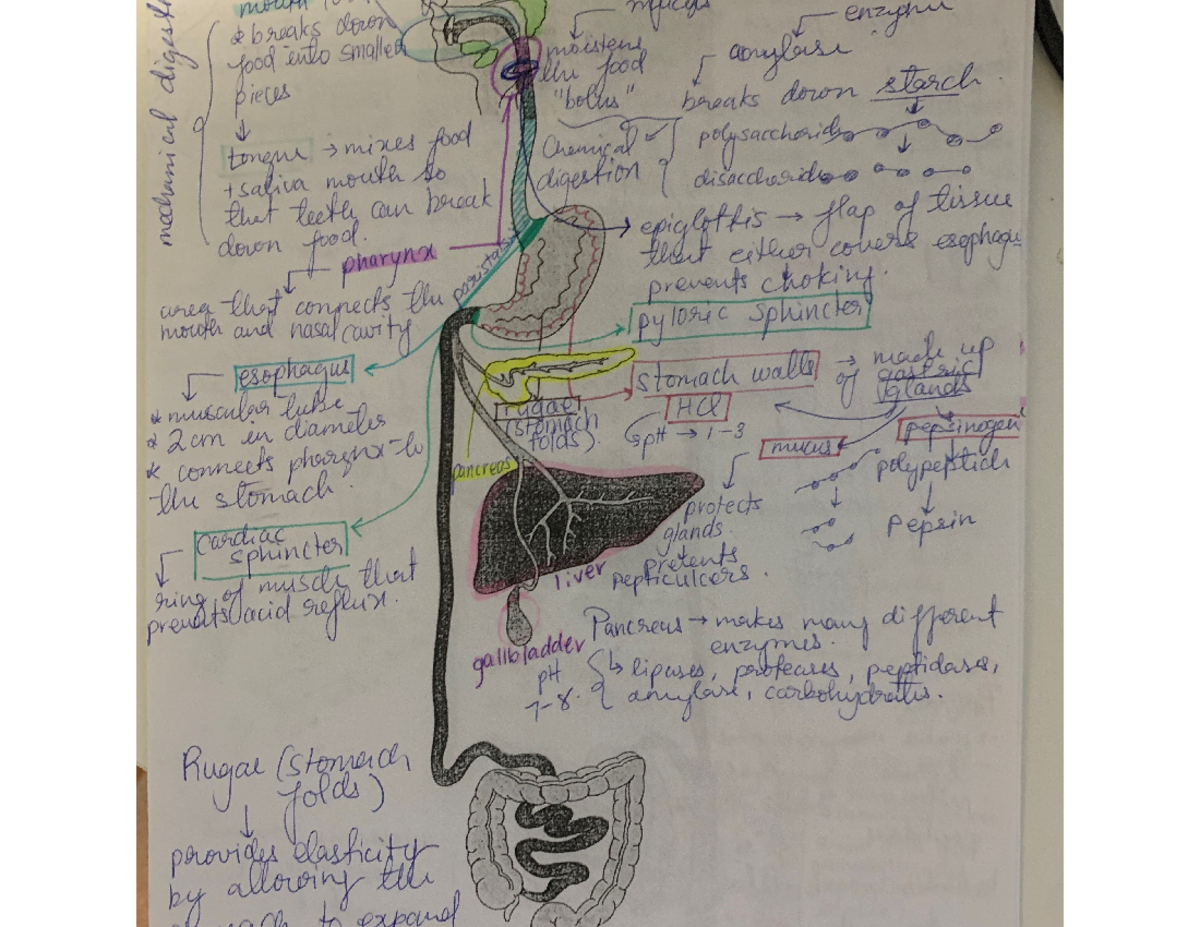 mechanical
mouth
* breaks down
food into smaller
pieces
tongue → mixes food
+saliva mouth so
that teeth can break
down food.
pharynx
area that connects the
mouth and nasal cavity
esophagus
* muscular tube
* 2cm in diameter
* connects pharynx to
the stomach.
cardiac
sphincter
ring of muscle that
prevents acid reflux.
moistens
the food
"bolus"
Chemical
digestion
enzyme
amylase
breaks down starch
polysaccharide
disaccharide
epiglottis → flap of tissue
that either covers esophagu
prevents choking.
pyloric sphincter
stomach walls → made up
of gastric
glands
rugae
(stomach
folds).
HCl
pH → 1-3
mucus
pepsinogen
polypeptide
Pepsin
protects
glands.
pretents
pepticulcers.
pancreas
liver
gallbladder
Pancreas → makes many different
enzymes.
pH
7-8.
lipases, proteases, peptidases,
amylase, carbohydrates.
Rugae (stomach
folds)
provides elasticity
by allowing the
to expand